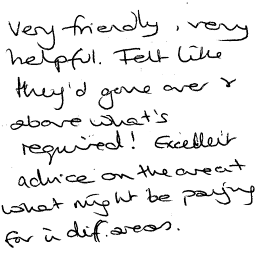 Very friendly, very
helpful. Felt like
they'd gone over &
above what's
required! Excellent
advice on the area &
what might be paying
for in diff. areas.